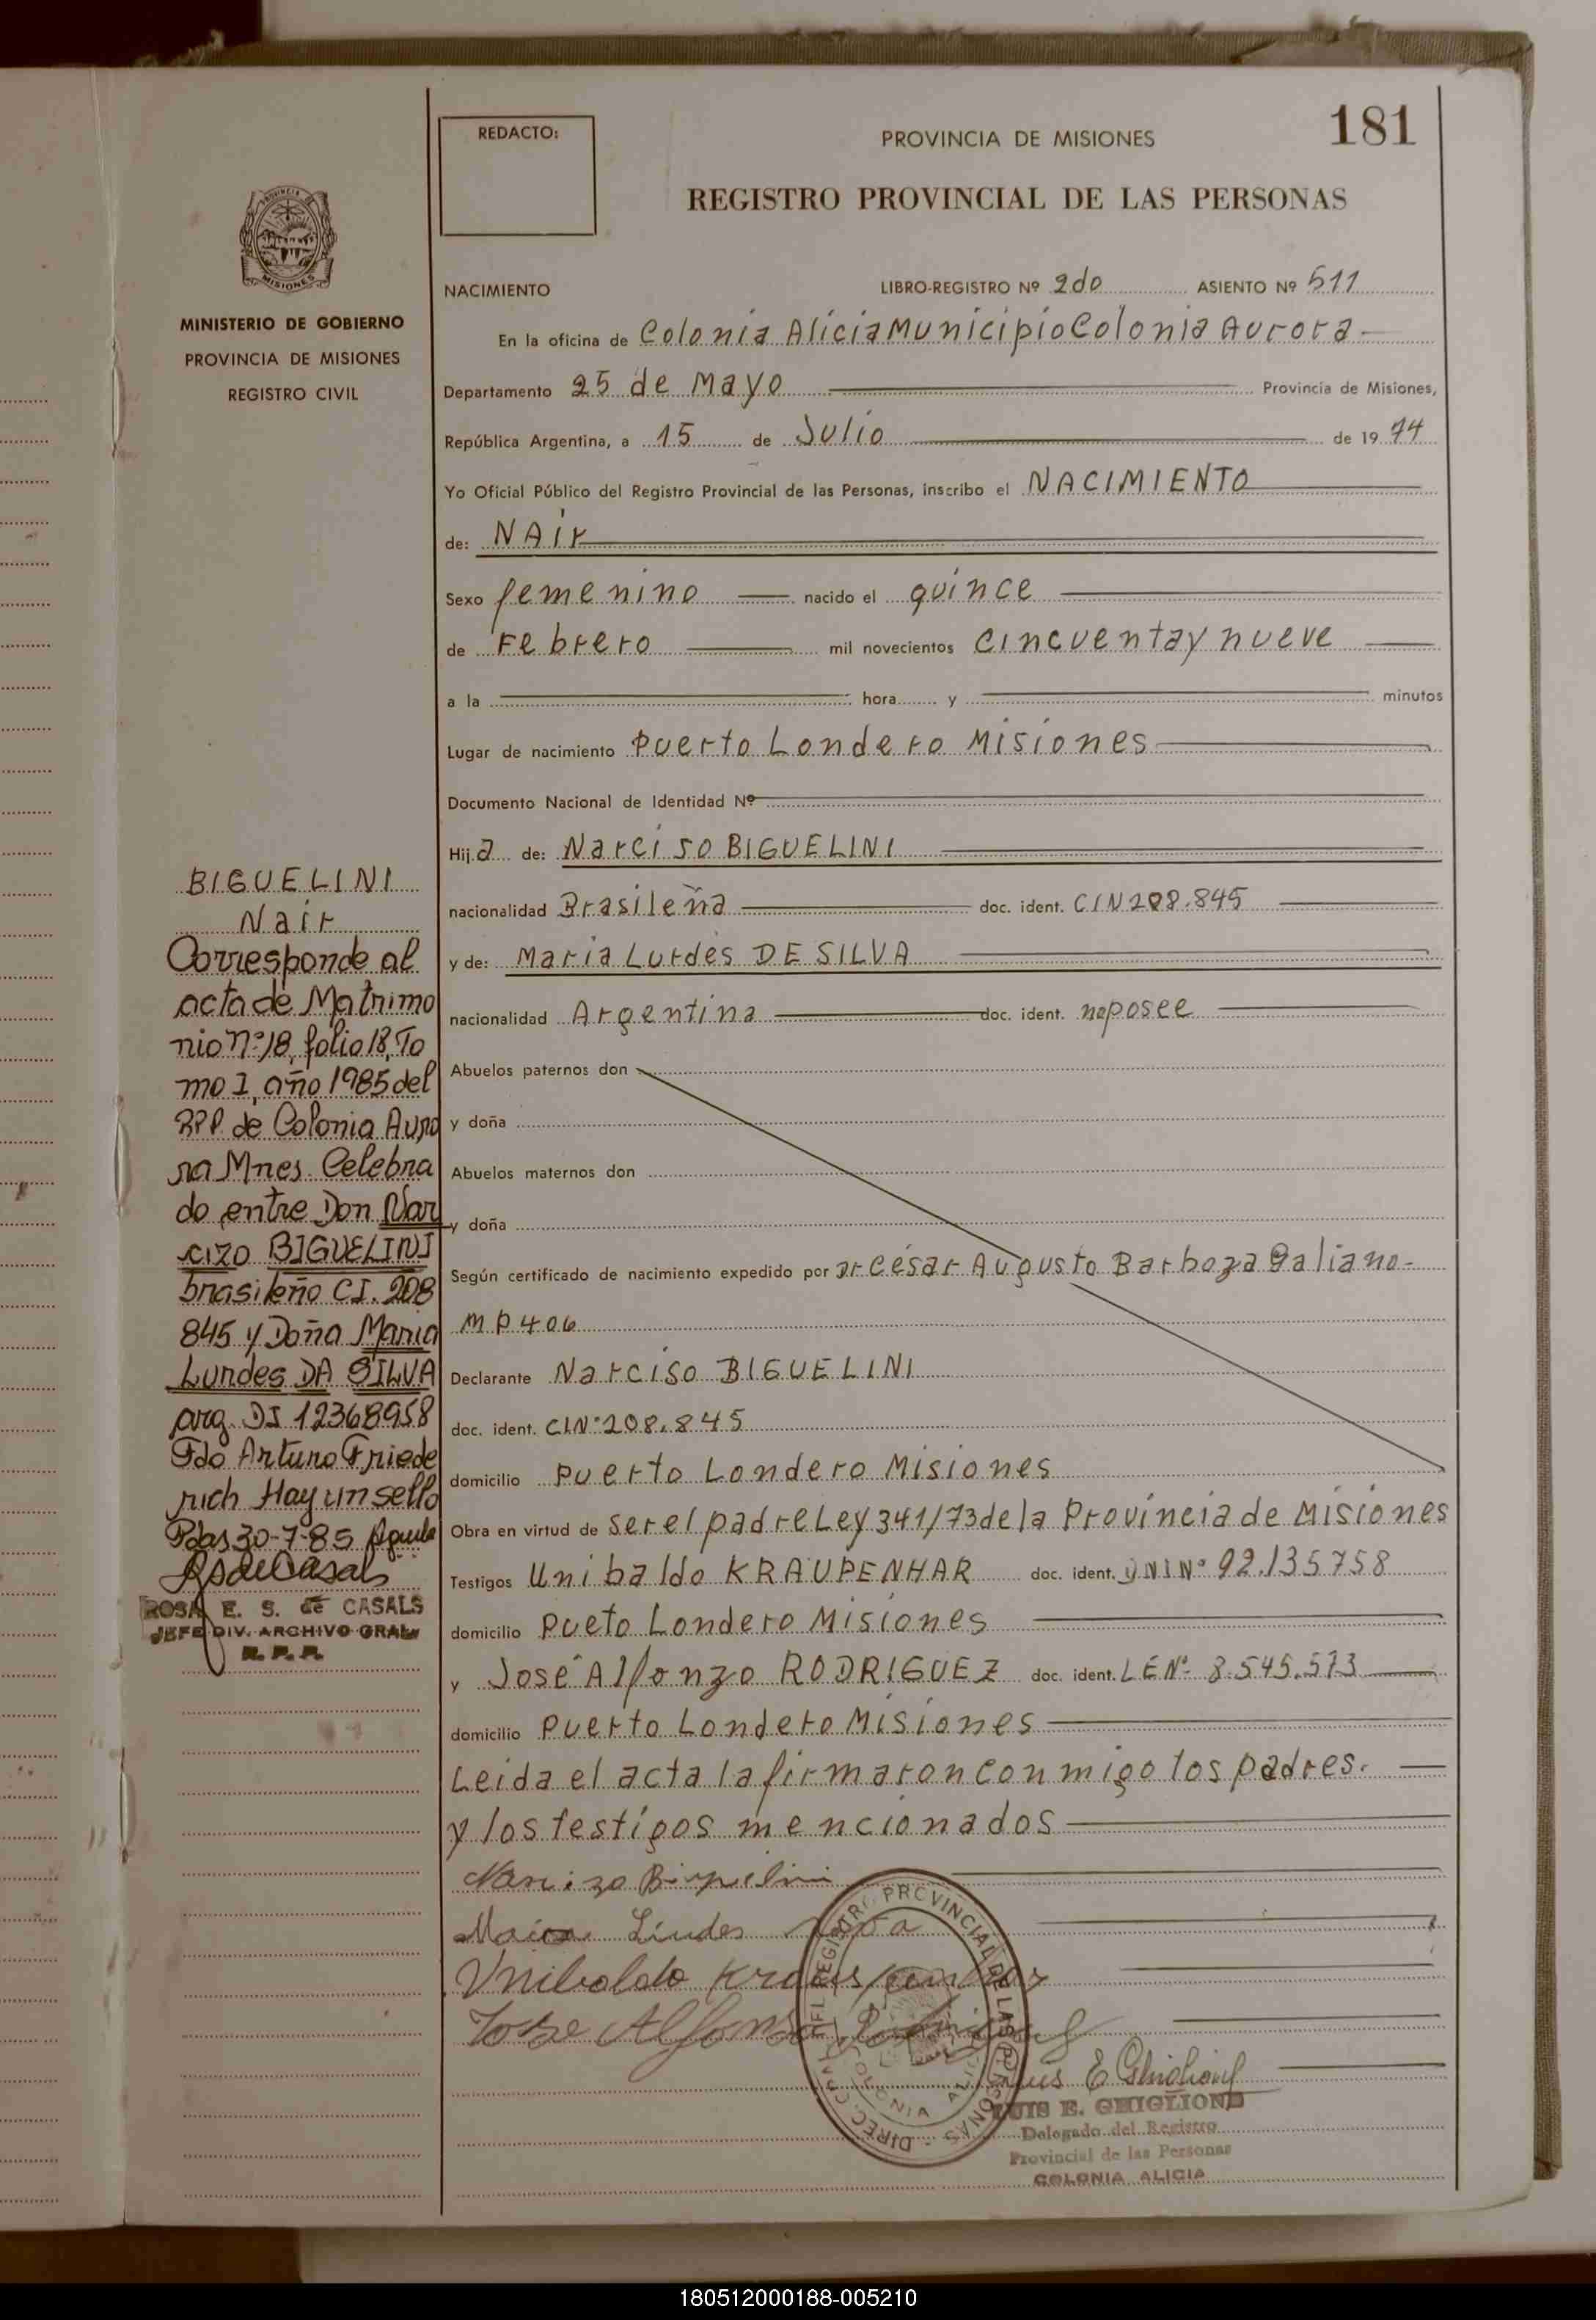 181
REDACTO:
PROVINCIA DE MISIONES
REGISTRO PROVINCIAL DE LAS PERSONAS
MISIONES
MINISTERIO DE GOBIERNO
PROVINCIA DE MISIONES
REGISTRO CIVIL
NACIMIENTO LIBRO-REGISTRO Nº 2do ASIENTO Nº 511
En la oficina de Colonia Alicia Municipio Colonia Aurora-
Departamento 25 de Mayo Provincia de Misiones,
República Argentina, a 15 de Julio de 1974
Yo Oficial Público del Registro Provincial de las Personas, inscribo el NACIMIENTO
de: NAir
Sexo femenino nacido el quince
de Febrero mil novecientos cincuenta y nueve
a la hora y minutos
Lugar de nacimiento Puerto Londero Misiones
Documento Nacional de Identidad Nº
Hija de: Narciso BIGUELINI
nacionalidad Brasileña doc. ident. CIN 208.845
y de: Maria Lurdes DE SILVA
nacionalidad Argentina doc. ident. no posee
Abuelos paternos don
y doña
Abuelos maternos don
y doña
Según certificado de nacimiento expedido por Dr César Augusto Barboza Galiano-
MP406
Declarante Narciso BIGUELINI
doc. ident. CIN° 208.845
domicilio Puerto Londero Misiones
Obra en virtud de ser el padre Ley 341/73 de la Provincia de Misiones
Testigos Unibaldo KRAUPENHAR doc. ident. DNI Nº 92.135758
domicilio Pueto Londero Misiones
y José Alfonzo RODRIGUEZ doc. ident. LE Nº 8.545.573
domicilio Puerto Londero Misiones
Leida el acta la firmaron conmigo los padres.
y los testigos mencionados
Narcizo Biguelini
Lurdes
Unibaldo
Jose Alfonso
Luis E Ghiglione
LUIS E. GHIGLIONE
Delegado del Registro
Provincial de las Personas
COLONIA ALICIA
DIREC. GRAL. DEL REGISTRO PROVINCIAL DE LAS PERSONAS -
COLONIA ALICIA
BIGUELINI
Nair
Corresponde al
acta de Matrimo
nio nº 18, folio 18, To
mo I, año 1985 del
RPP. de Colonia Auro
ra Mnes. Celebra
do entre Don Nar
cizo BIGUELINI
brasileño CI. 208
845 y Doña Maria
Lurdes DA SILVA
arg. DI 12368958
Fdo Arturo Friede
rich Hay un sello
Pdas 30-7-85
RSdeCasals
ROSA E. S. de CASALS
JEFE DIV. ARCHIVO GRAL
R. P. P.
180512000188-005210